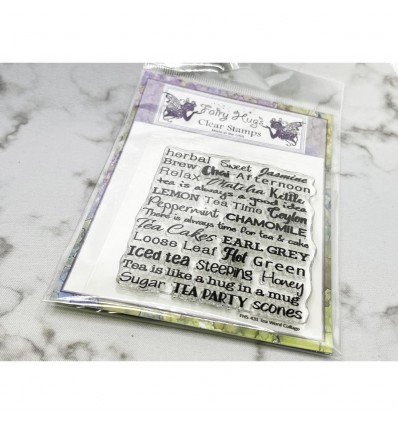 Fairy Hugs
Clear Stamps
Made in the USA
herbal Sweet Jasmine
Brew Chai Afternoon
Relax Matcha Kettle
tea is always a good idea
LEMON Tea Time Ceylon
Peppermint CHAMOMILE
There is always time for tea & cake
Tea Cakes EARL GREY
Loose Leaf Hot Green
Iced tea Steeping Honey
Tea is like a hug in a mug
Sugar TEA PARTY scones
FHS-431 Tea Word Collage